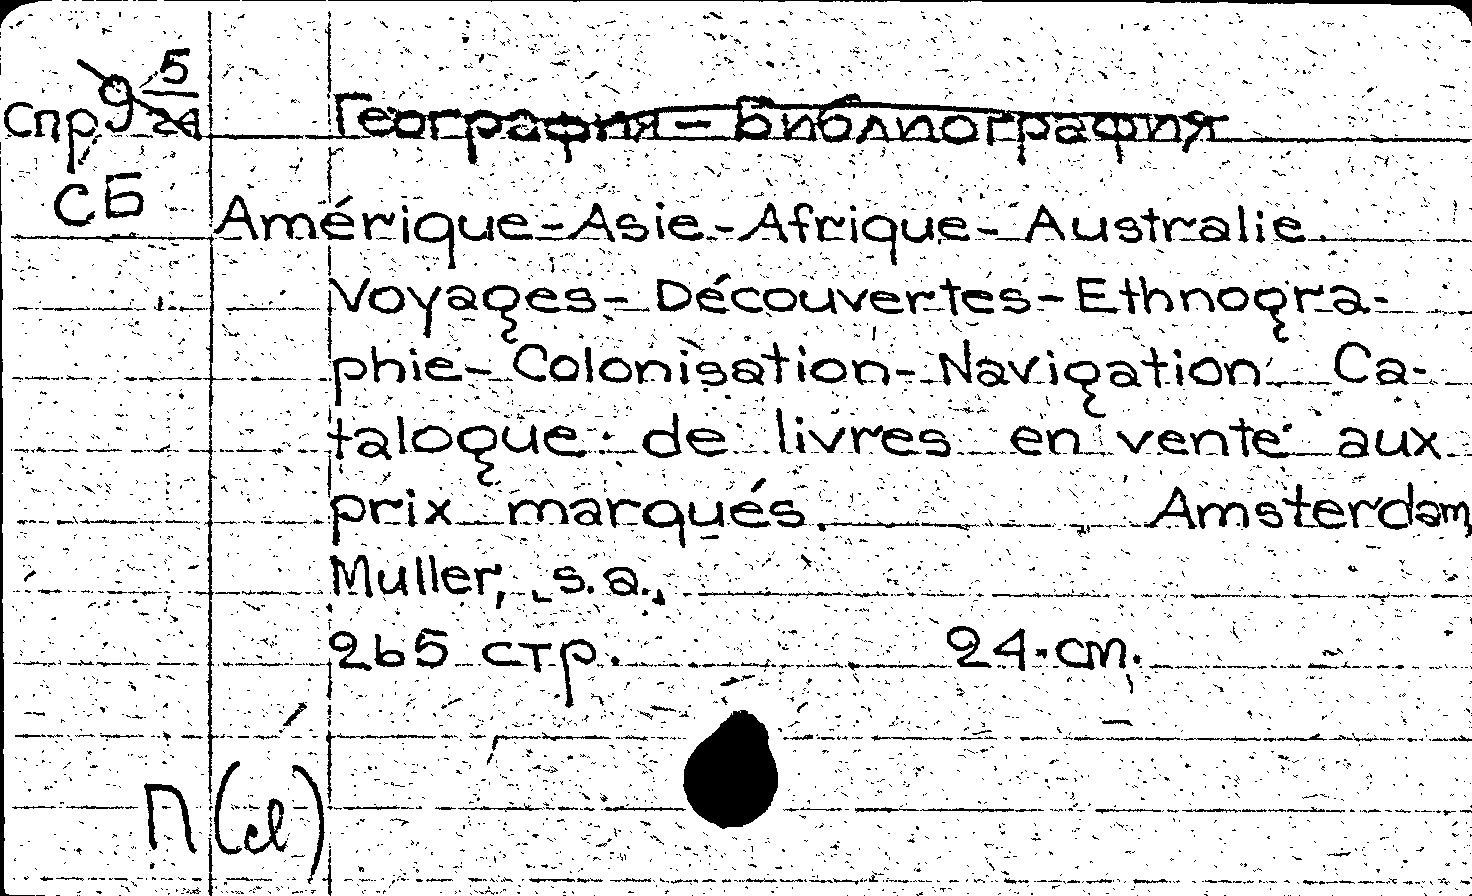 5
Спр 9 24
География – Библиография
СБ
Amérique-Asie-Afrique-Australie.
Voyages-Découvertes-Ethnogra-
phie-Colonisation-Navigation Ca-
talogue de livres en vente aux
prix marqués. Amsterdam,
Muller, s.a.,
265 стр. 24 cm.
П(d)